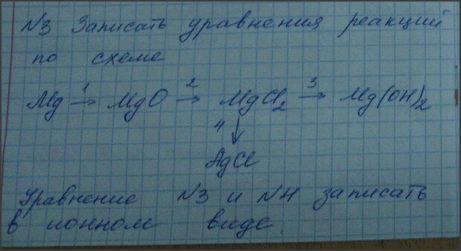 №3 Записать уравнения реакций
по схеме
1 2 3
Mg → MgO → MgCl₂ → Mg(OH)₂
4 ↓
AgCl
Уравнение №3 и №4 записать
в ионном виде.